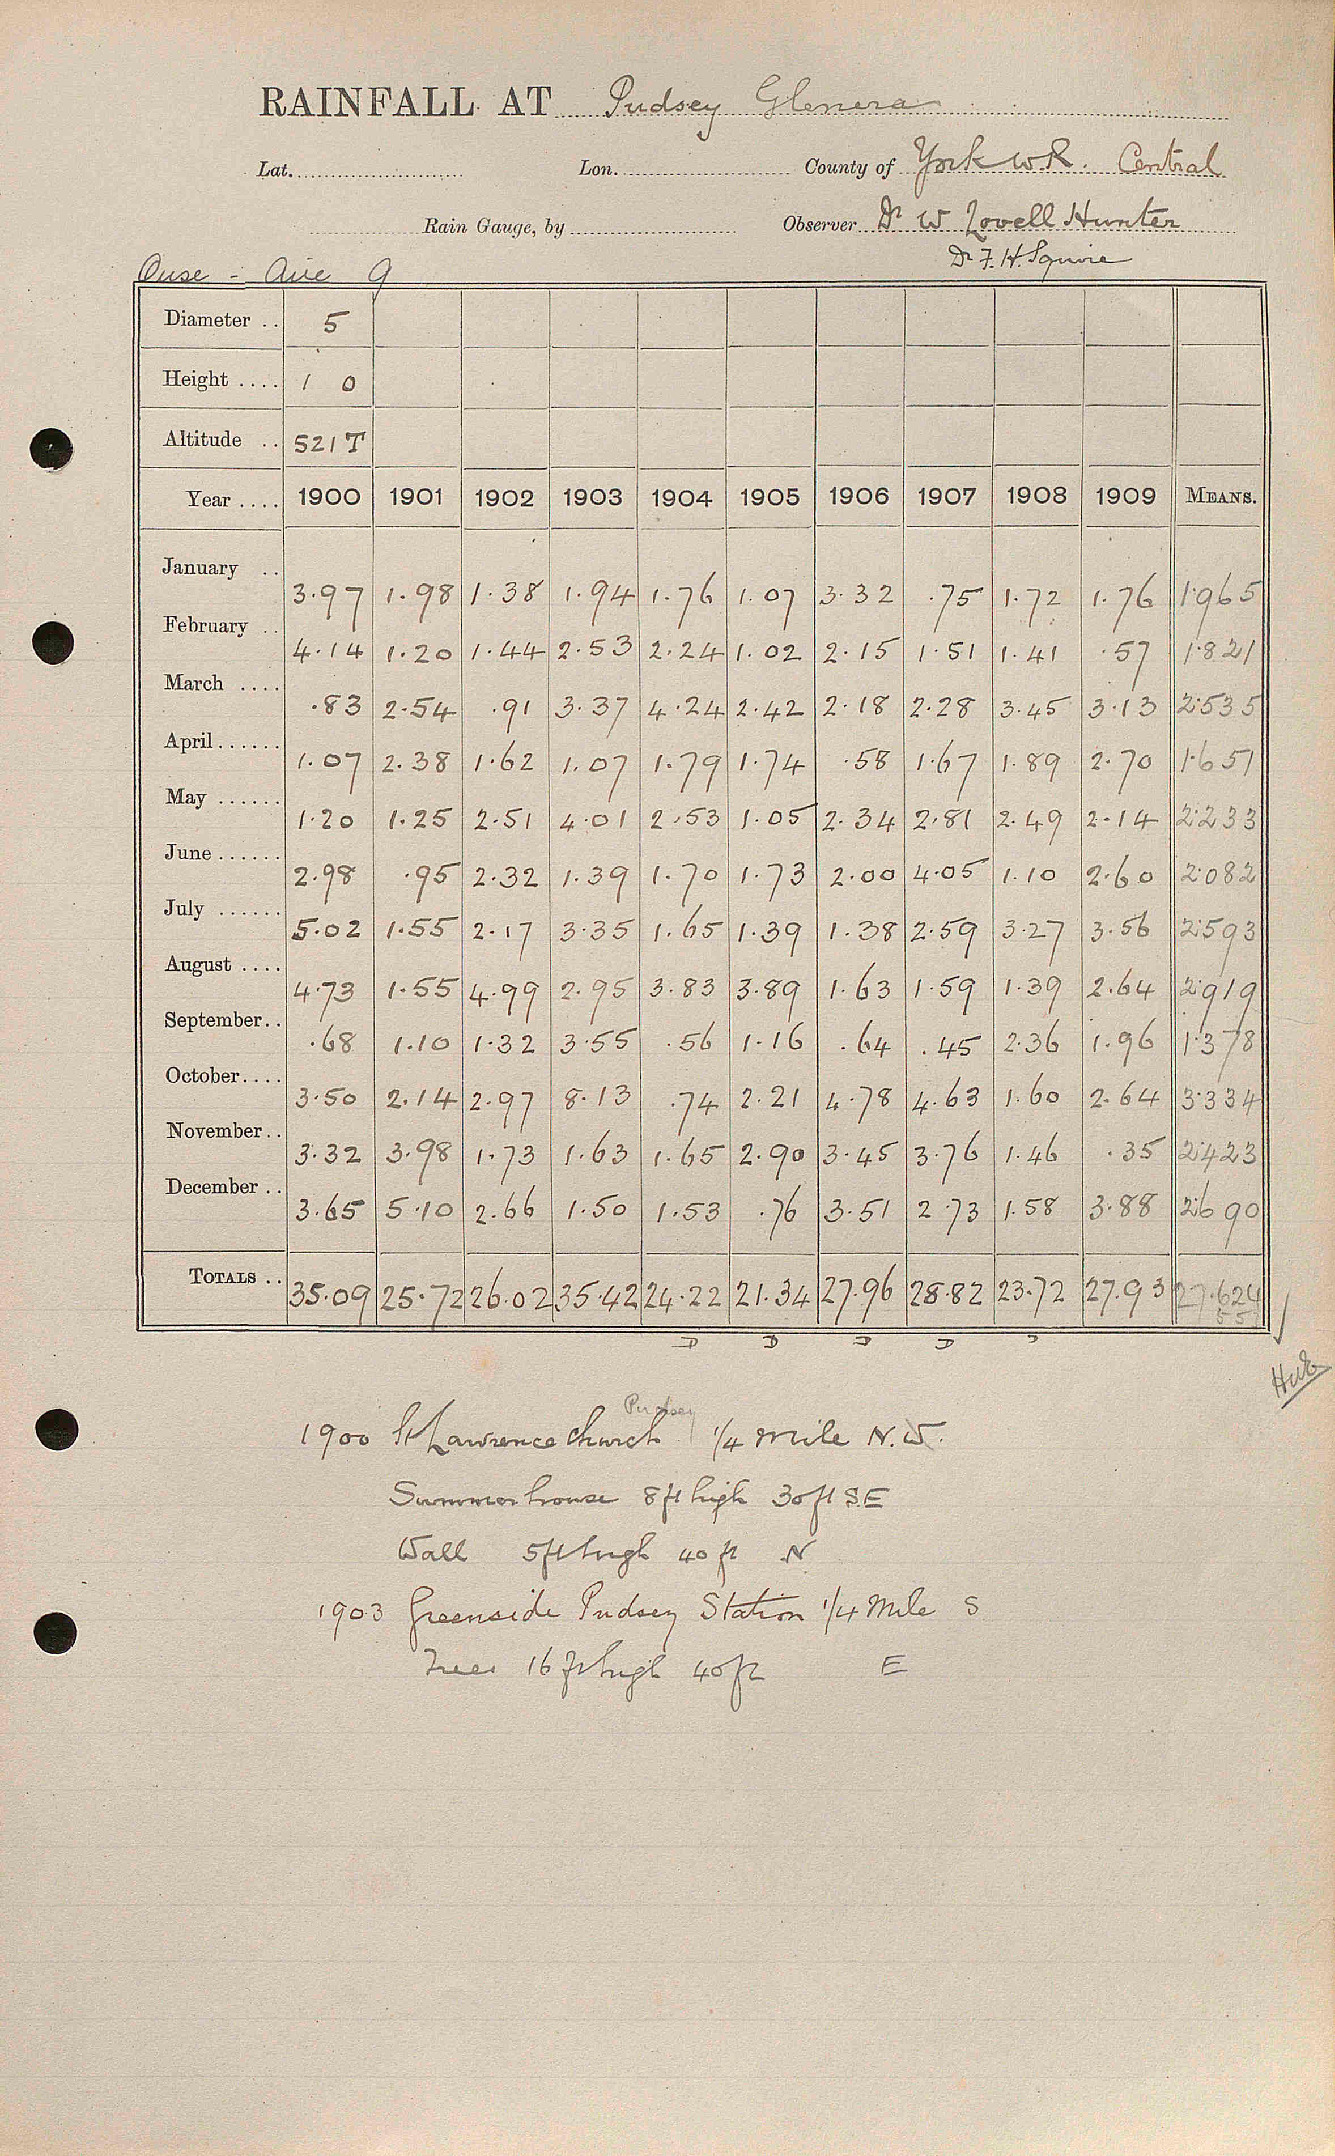 RAINFALL AT Pudsey Glenera
Lat. Lon. County of York W.R. Central
Rain Gauge, by Observer Dr W Lovell Hunter
Dr F. H. Squire
Ouse - Aire 9
Diameter .. 5
Height .... 1 0
Altitude .. 521 T
Year .... 1900 1901 1902 1903 1904 1905 1906 1907 1908 1909 MEANS.
January .. 3.97 1.98 1.38 1.94 1.76 1.07 3.32 .75 1.72 1.76 1.965
February .. 4.14 1.20 1.44 2.53 2.24 1.02 2.15 1.51 1.41 .57 1.821
March .... .83 2.54 .91 3.37 4.24 2.42 2.18 2.28 3.45 3.13 2.535
April ...... 1.07 2.38 1.62 1.07 1.79 1.74 .58 1.67 1.89 2.70 1.651
May ...... 1.20 1.25 2.51 4.01 2.53 1.05 2.34 2.81 2.49 2.14 2.233
June ...... 2.98 .95 2.32 1.39 1.70 1.73 2.00 4.05 1.10 2.60 2.082
July ...... 5.02 1.55 2.17 3.35 1.65 1.39 1.38 2.59 3.27 3.56 2.593
August .... 4.73 1.55 4.99 2.95 3.83 3.89 1.63 1.59 1.39 2.64 2.919
September .. .68 1.10 1.32 3.55 .56 1.16 .64 .45 2.36 1.96 1.378
October .... 3.50 2.14 2.97 8.13 .74 2.21 4.78 4.63 1.60 2.64 3.334
November .. 3.32 3.98 1.73 1.63 1.65 2.90 3.45 3.76 1.46 .35 2.423
December .. 3.65 5.10 2.66 1.50 1.53 .76 3.51 2.73 1.58 3.88 2.690
TOTALS .. 35.09 25.72 26.02 35.42 24.22 21.34 27.96 28.82 23.72 27.93 27.624
D D D D D
Pudsey
1900 St Lawrence Church 1/4 Mile N.W.
Summer house 8 ft high 30 ft S.E
Wall 5 ft high 40 ft N
1903 Greenside Pudsey Station 1/4 Mile S
Trees 16 ft high 40 ft E